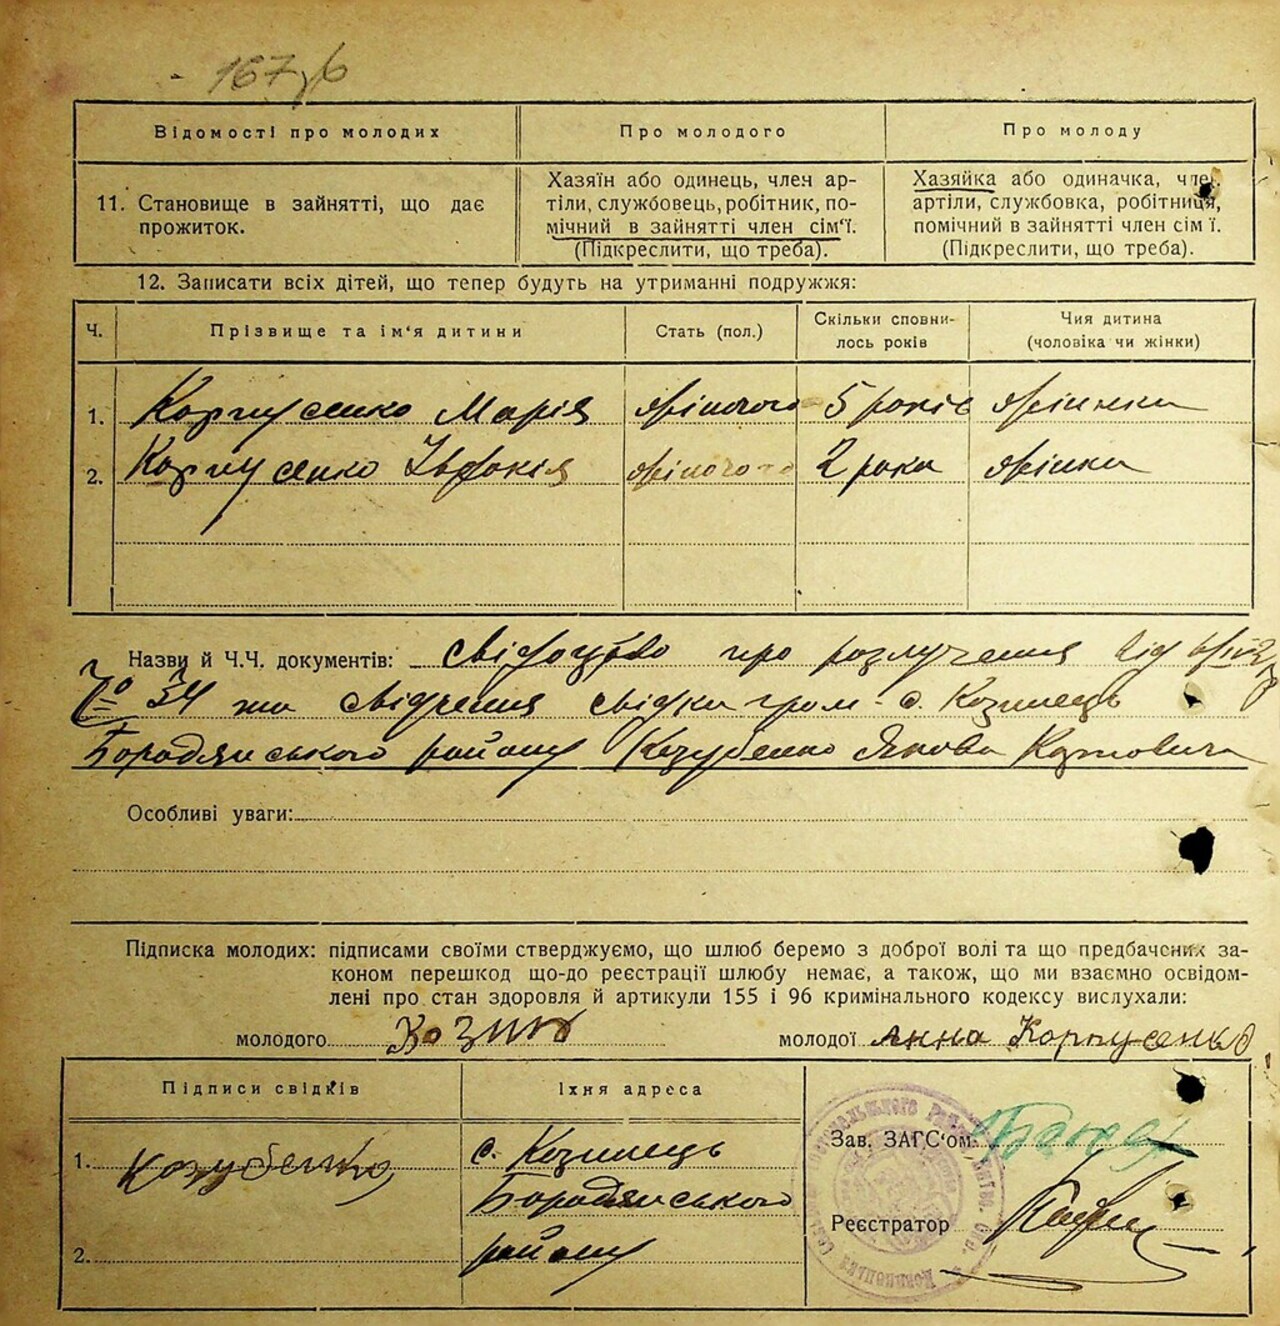 167
Відомості про молодих
Про молодого
Про молоду
11. Становище в зайнятті, що дає
прожиток.
Хазяїн або одинець, член ар-
тіли, службовець, робітник, по-
мічний в зайнятті член сім'ї.
(Підкреслити, що треба).
Хазяйка або одиначка, член
артіли, службовка, робітниця,
помічний в зайнятті член сім ї.
(Підкреслити, що треба).
12. Записати всіх дітей, що тепер будуть на утриманні подружжя:
Ч.
Прізвище та ім'я дитини
Стать (пол.)
Скільки сповни-
лось років
Чия дитина
(чоловіка чи жінки)
1. Корпусенко Марія жіночого 5 років жінки
2. Корпусенко Івдокія жіночого 2 роки жінки
Назви й Ч.Ч. документів: свідоцтво про розлучення від
№ 34 та свідчення свідки гром. с. Козинець
Бородянського району Козубенко Якова
Особливі уваги:
Підписка молодих: підписами своїми стверджуємо, що шлюб беремо з доброї волі та що предбачених за-
коном перешкод що-до реєстрації шлюбу немає, а також, що ми взаємно освідом-
лені про стан здоровля й артикули 155 і 96 кримінального кодексу вислухали:
молодого
молодої Анна Корпусенько
Підписи свідків
Їхня адреса
1. Козубенко
с. Козинець
Бородянського
району
2.
Зав. ЗАГС'ом
Реєстратор